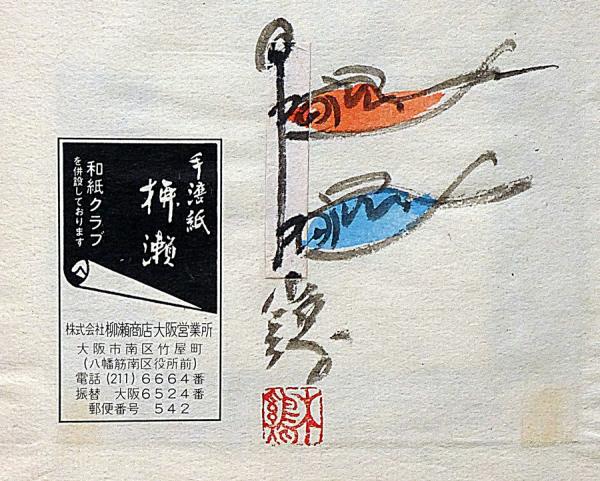 手漉紙
柳瀬
和紙クラブ
を併設しております
株式会社柳瀬商店大阪営業所
大阪市南区竹屋町
(八幡筋南区役所前)
電話(211)6664番
振替 大阪6524番
郵便番号 542